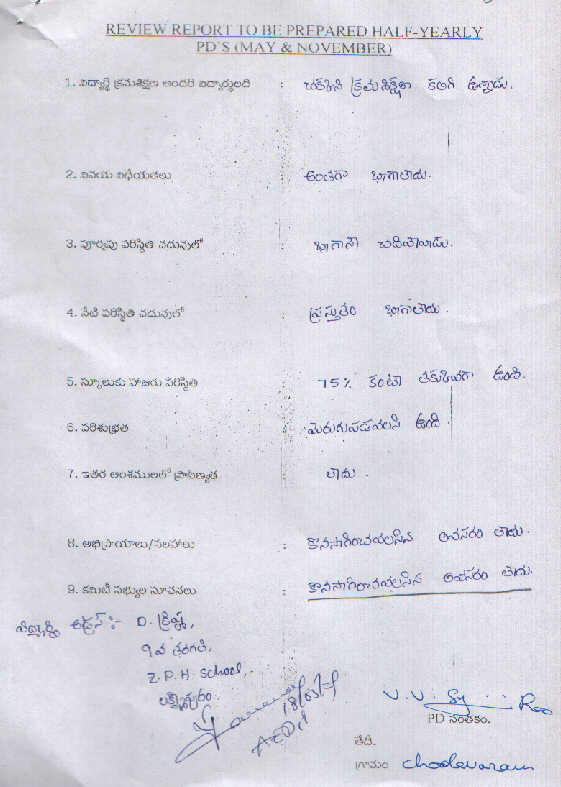 REVIEW REPORT TO BE PREPARED HALF-YEARLY
PD'S (MAY & NOVEMBER)
1. విద్యార్థి క్రమశిక్షణ అందరి విద్యార్థులది : క్రమశిక్షణ కలిగి ఉన్నాడు.
2. వినయ విధేయతలు : అంతగా బాగాలేదు.
3. పూర్వపు పరిస్థితి చదువులో : బాగానే చదివేవాడు.
4. నేటి పరిస్థితి చదువులో : ప్రస్తుతం బాగాలేదు.
5. స్కూలుకు హాజరు పరిస్థితి : 75% కంటే తక్కువగా ఉంది.
6. పరిశుభ్రత : మెరుగుపడవలసి ఉంది.
7. ఇతర అంశములలో ప్రావీణ్యత : లేదు.
8. అభిప్రాయాలు/సలహాలు : కొనసాగించవలసిన అవసరం లేదు.
9. కమిటీ సభ్యుల సూచనలు : కొనసాగించవలసిన అవసరం లేదు.
విద్యార్థి అడ్రస్ :- D.
9వ తరగతి,
Z.P.H. School,
PD సంతకం.
తేది.
గ్రామం Chodavaram